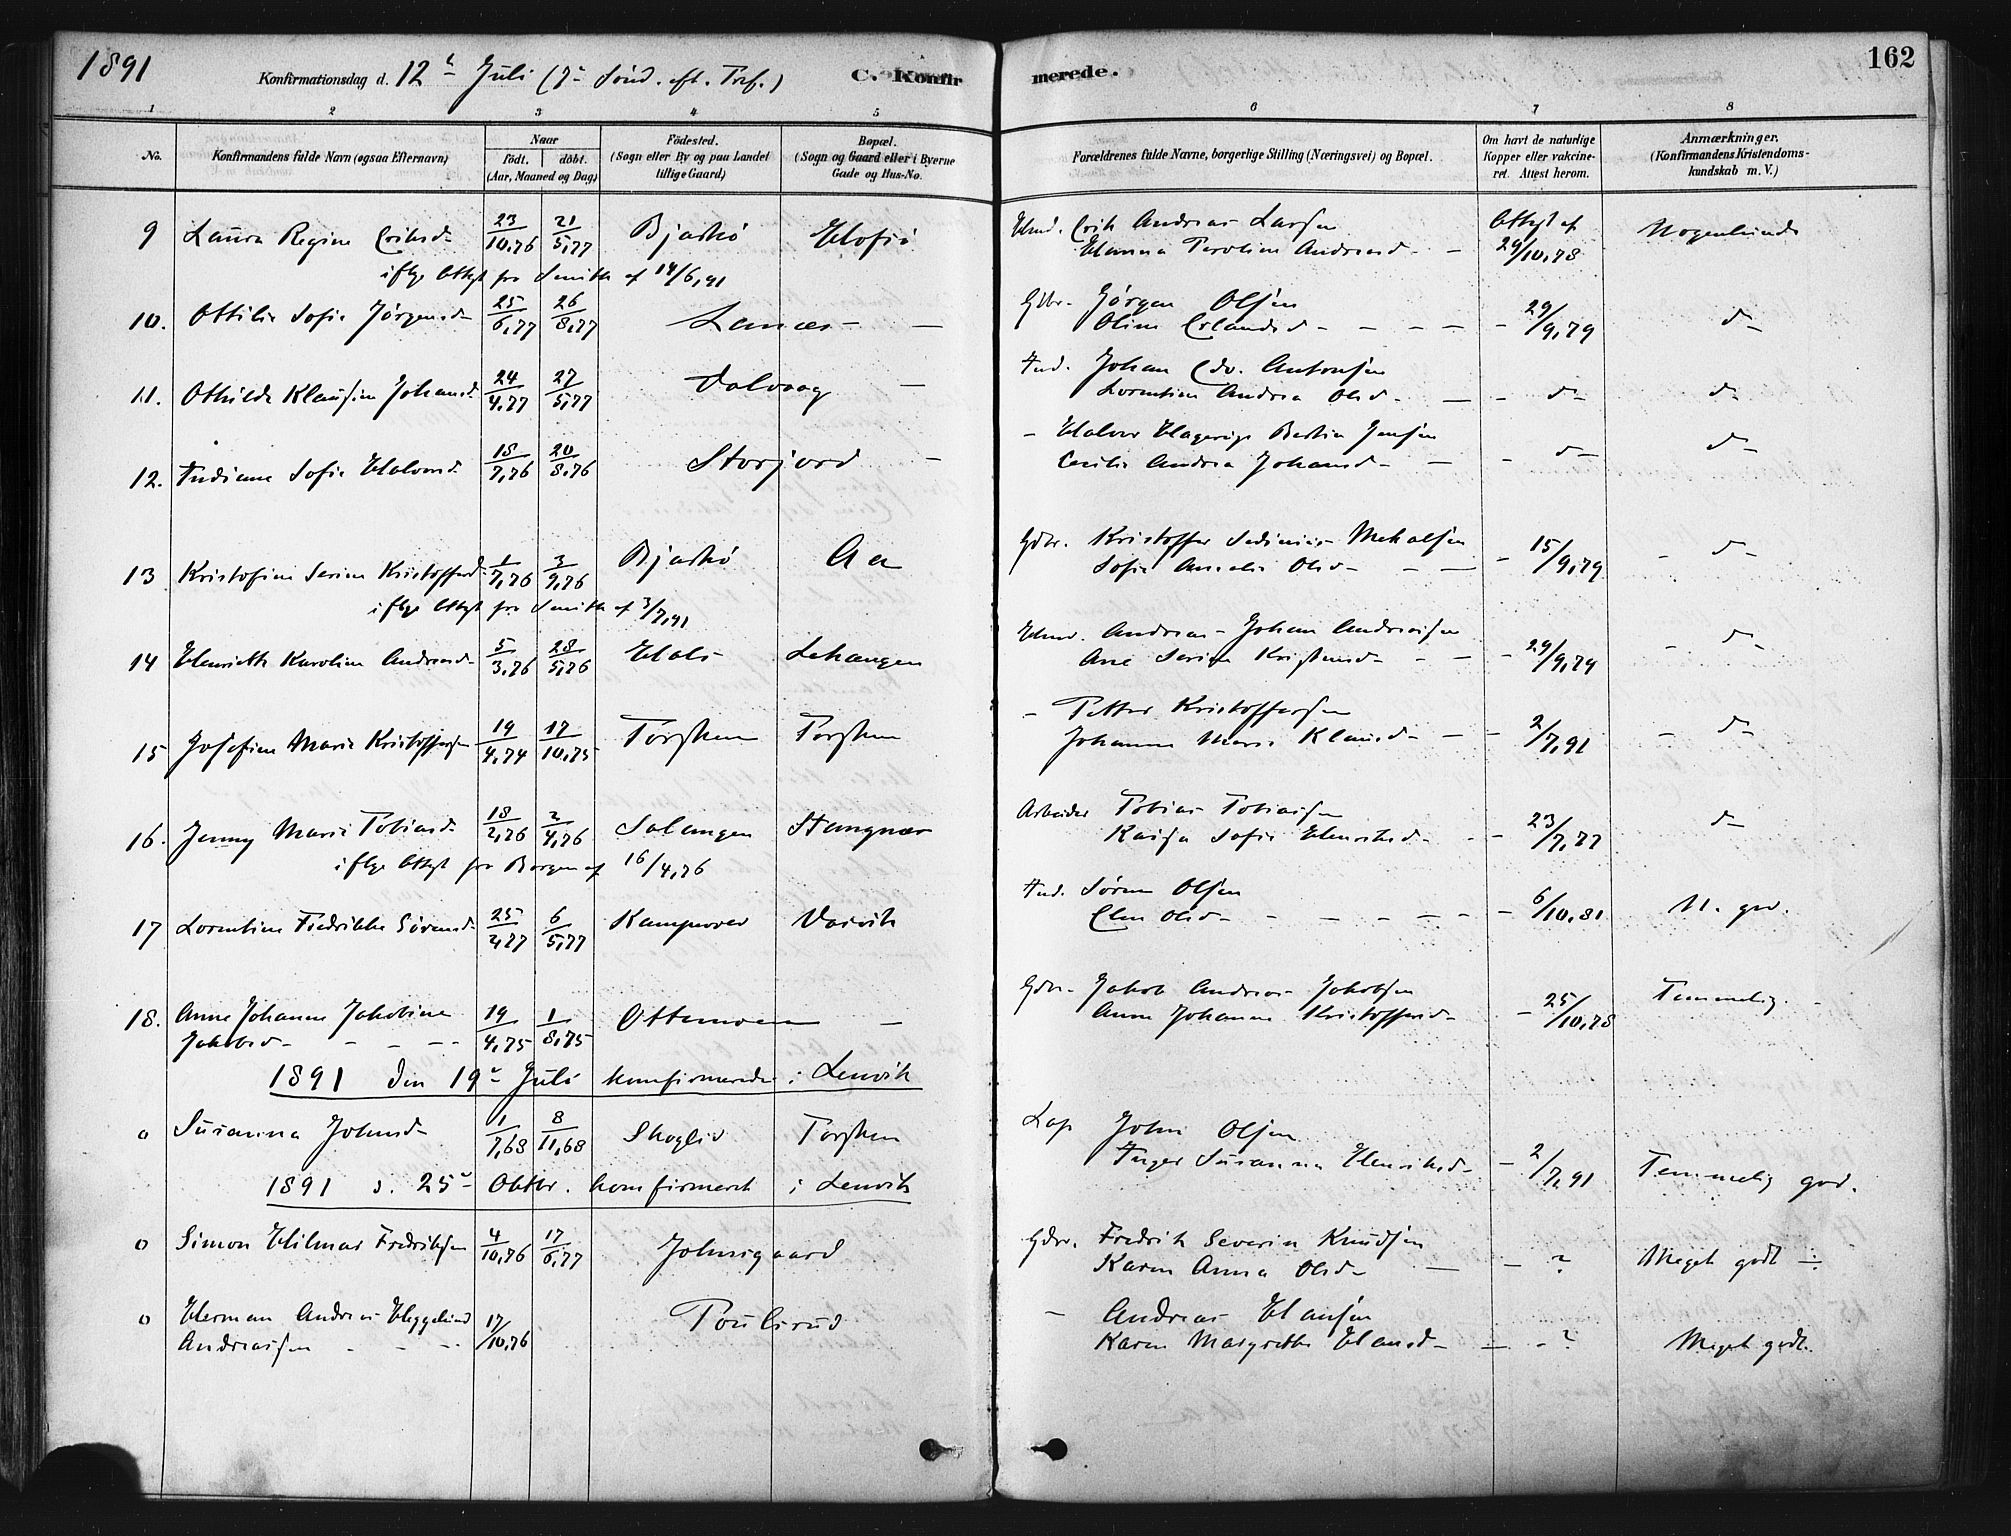 1891 Konfirmationsdag d. 12te Juli (7de Sönd. eft. Tref.) C. Konfirmerede. 162
1 2 3 4 5 6 7 8
No. Konfirmandens fulde Navn (ogsaa Efternavn) Naar födt. döbt. (Aar, Maaned og Dag) Födested. (Sogn eller By og paa Landet tillige Gaard) Bopæl. (Sogn og Gaard eller i Byerne Gade og Hus-No. Forældrenes fulde Navne, borgerlige Stilling (Næringsvei) og Bopæl. Om havt de naturlige Kopper eller vakcineret. Attest herom. Anmærkninger. (Konfirmandens Kristendomskundskab m. V.)
9 Laura Regine Eriksd. 23/10,76 21/5,77 Bjarkö Hofsö Hmd. Erik Andreas Larsen Attest af 29/10,78 Nogenlunde
Hanna Andreasd. -
iflge Attest fra Senik af 14/6,91
10. Ottilie Sofie Jörgensd. 25/6,77 26/8,77 Lanæs - Gbr. Jörgen Olsen
Oline Erlandsd. - - - 29/9,79 d-
11. Othilde Klausine Johansd. 24/4,77 27/5,77 Valvaag - Ind. Johan Edv. Antonsen
Lorentine Andrea Olsd. - d- d-
12. Indiane Sofie Halvorsd. 18/7,76 20/8,76 Storjord - - Halvor Bastian Jensen
Cecilie Andrea Johansd. - d- d-
13 Kristofine Serine Kristoffersd. 1/7,76 3/9,76 Bjarkö Aa Gdbr. Kristoffer Sedinius Mekalsen
Sofie Amalie Olsd. - - 15/9,79 - d-
iflge Attest fra Senik af 3/7,91
14 Henriette Karoline Andreasd. 5/3,76 28/5,76 Hals Lekangen Hmd. Andreas Johan Andreassen
Ane Serine Kristensd. - - 29/9,79 - d-
15 Josefine Marie Kristoffersen 19/4,74 17/10,75 Torsken Torsken - Petter Kristoffersen
Johanna Marie Klausd. - 2/7,91 - d-
16. Jenny Marie Tobiasd. 18/2,76 2/4,76 Salangen Stangnæs Arbeider Tobias Tobiassen
Kaisa Sofie Henriksd. - 23/7,77 d-
iflge Attest fra Borgen af 16/4,76
17 Lorentine Fredrikke Sörensd. 25/2,77 6/5,77 Kampevold Vasvik Ind. Sören Olsen
Elen Olsd. - - - - - 6/10,81 N. god.
18. Anne Johanne Jakobine
Jakobsd. - - - 19/4,75 1/8,75 Ottemoen - Gdbr. Jakob Andreas Jakobsen
Anne Johanne Kristoffersd. - 25/10,78 Temmelig.
1891 den 19de Juli konfirmerede i Lenvik
o Susanna Johnsd. 1/7,68 8/11,68 Skoglid Torsken Lap John Olsen
Inger Susanna Henriksd. - 2/7,91 Temmelig god.
1891 d. 25de Oktbr. konfirmeret i Lenvik
o Simon Hilmar Fredriksen 4/10,76 17/6,77 Johnsgaard Gdbr. Fredrik Severin Knudsen
Karen Anna Olsd. - - ? Meget godt
o Herman Andreas Heggelund
Andreassen - - - 17/10,76 - Andreas Hansen
Karen Margrethe Hansd. - - ? Meget godt.